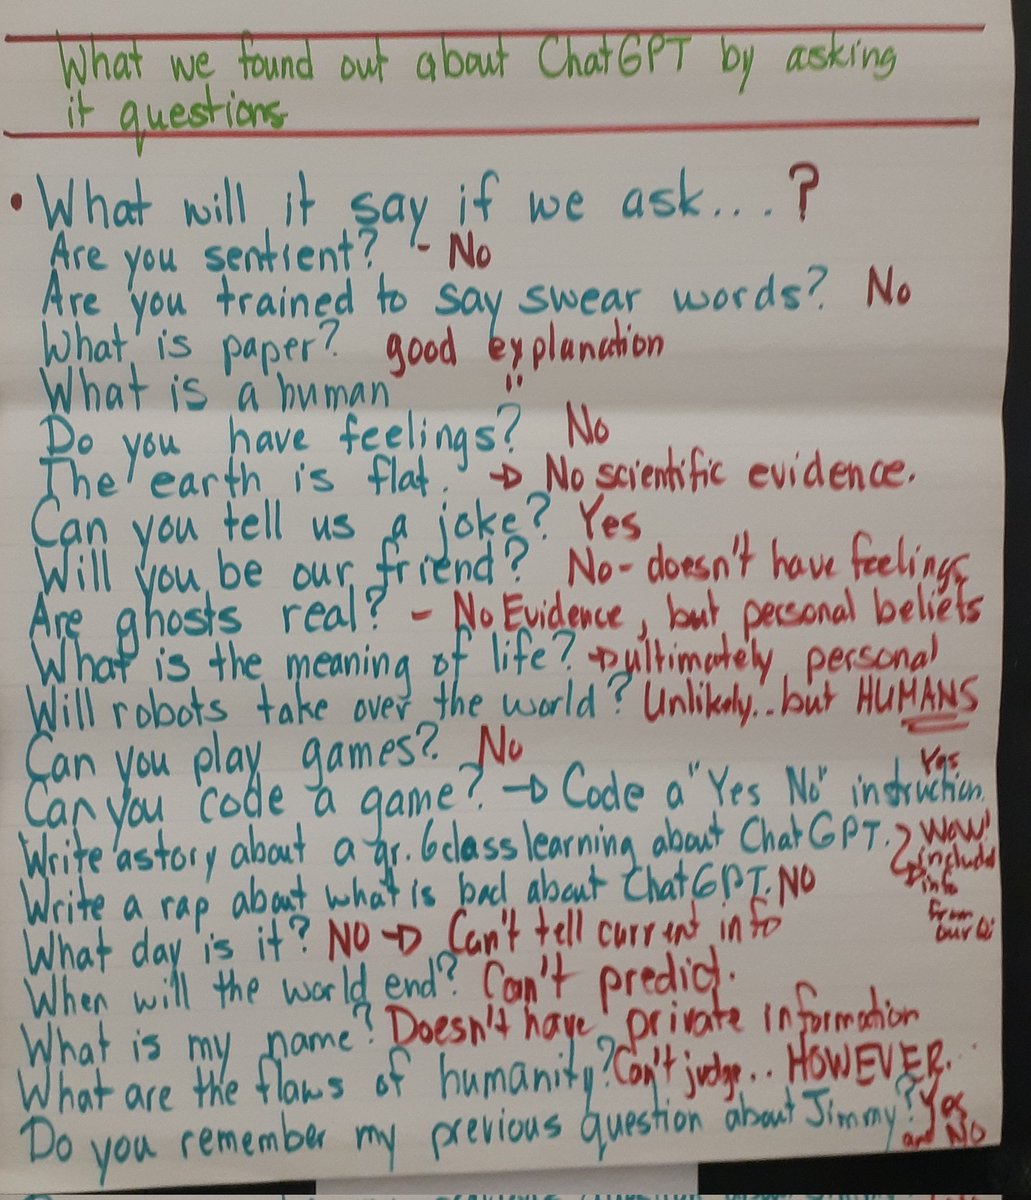 What we found out about ChatGPT by asking
it questions
• What will it say if we ask....?
Are you sentient? - No
Are you trained to say swear words? No
What is paper? good explanation
What is a human "
Do you have feelings? No
The earth is flat. → No scientific evidence.
Can you tell us a joke? Yes
Will you be our friend? No - doesn't have feelings
Are ghosts real? - No Evidence, but personal beliefs
What is the meaning of life? → ultimately personal
Will robots take over the world? Unlikely.. but HUMANS
Can you play games? No
Can you code a game? → Code a "Yes No" instruction. Yes
Write a story about a gr. 6 class learning about ChatGPT. → Wow! included info from our Q:
Write a rap about what is bad about ChatGPT. NO
What day is it? NO → Can't tell current info
When will the world end? Can't predict.
What is my name? Doesn't have private information
What are the flaws of humanity? Can't judge... HOWEVER...
Do you remember my previous question about Jimmy? Yes and NO